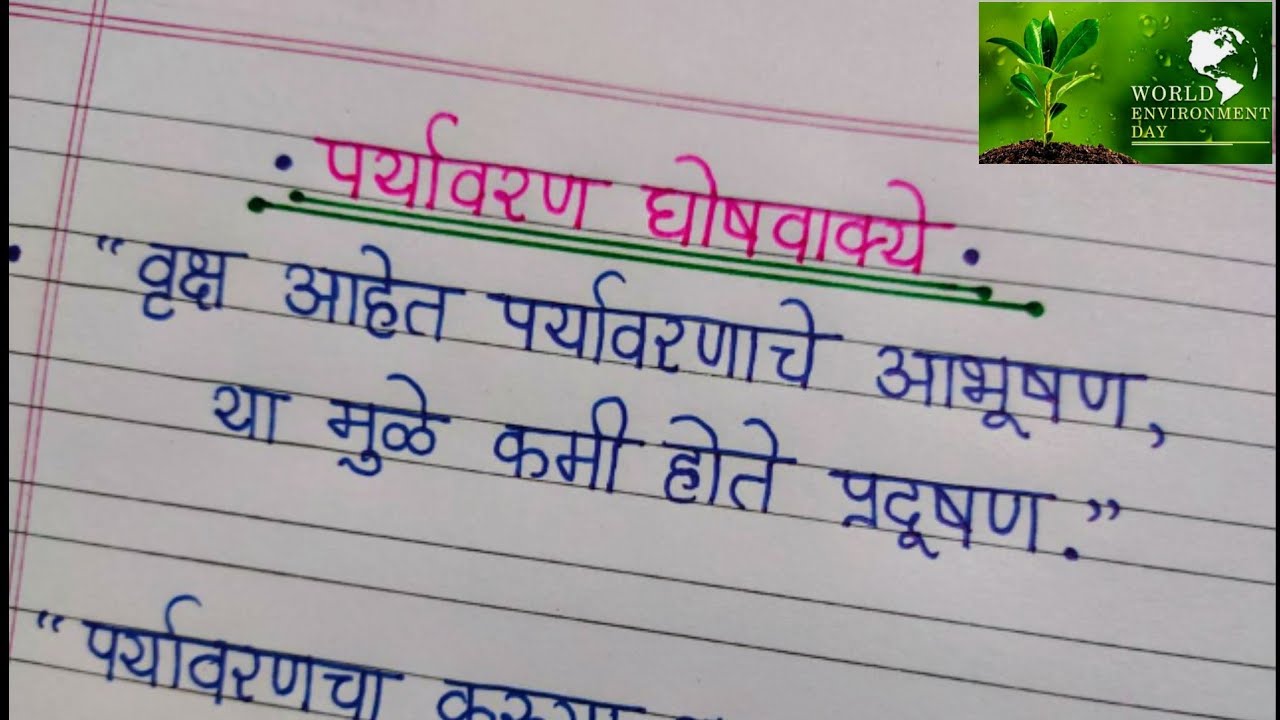 WORLD
ENVIRONMENT
DAY
• पर्यावरण घोषवाक्ये •
• "वृक्ष आहेत पर्यावरणाचे आभूषण,
या मुळे कमी होते प्रदूषण."
"पर्यावरणचा